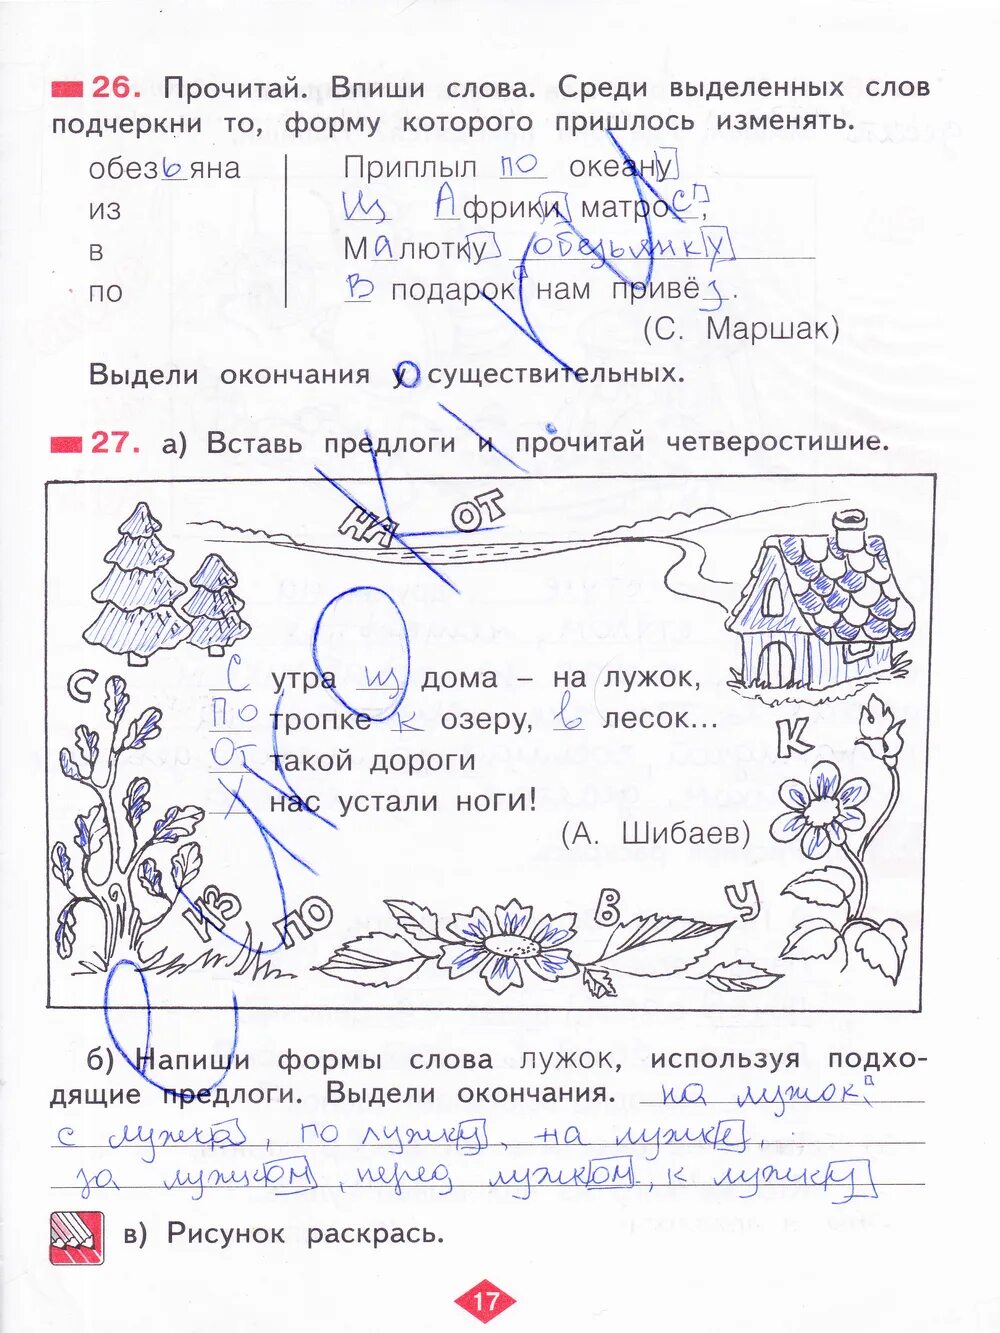 26. Прочитай. Впиши слова. Среди выделенных слов
подчеркни то, форму которого пришлось изменять.
обезьяна
из
в
по
Приплыл по океану
Из Африки матрос,
Малютку обезьянку
В подарок нам привёз.
(С. Маршак)
Выдели окончания у существительных.
27. а) Вставь предлоги и прочитай четверостишие.
НА ОТ
С утра из дома – на лужок,
По тропке к озеру, в лесок...
От такой дороги
У нас устали ноги!
(А. Шибаев)
С
К
ИЗ ПО В У
б) Напиши формы слова лужок, используя подхо-
дящие предлоги. Выдели окончания. на лужок,
с лужка, по лужку, на лужке,
за лужком, перед лужком, к лужку
в) Рисунок раскрась.
17